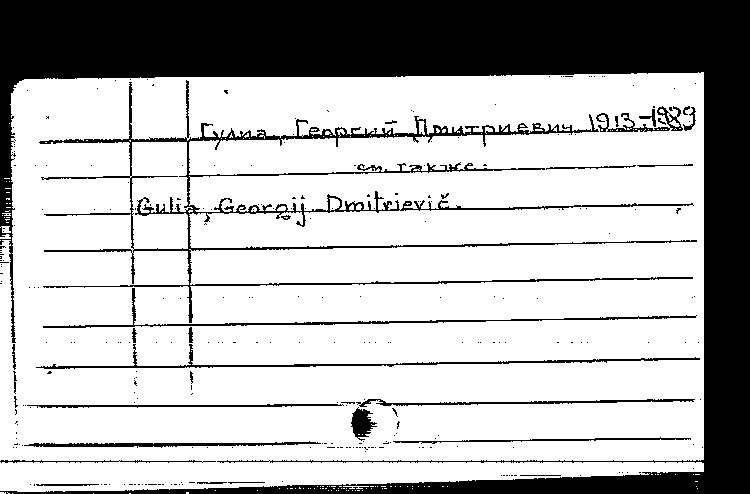 Гулиа, Георгий Дмитриевич 1913-1989
см. также:
Gulia, Georgij Dmitrievič.